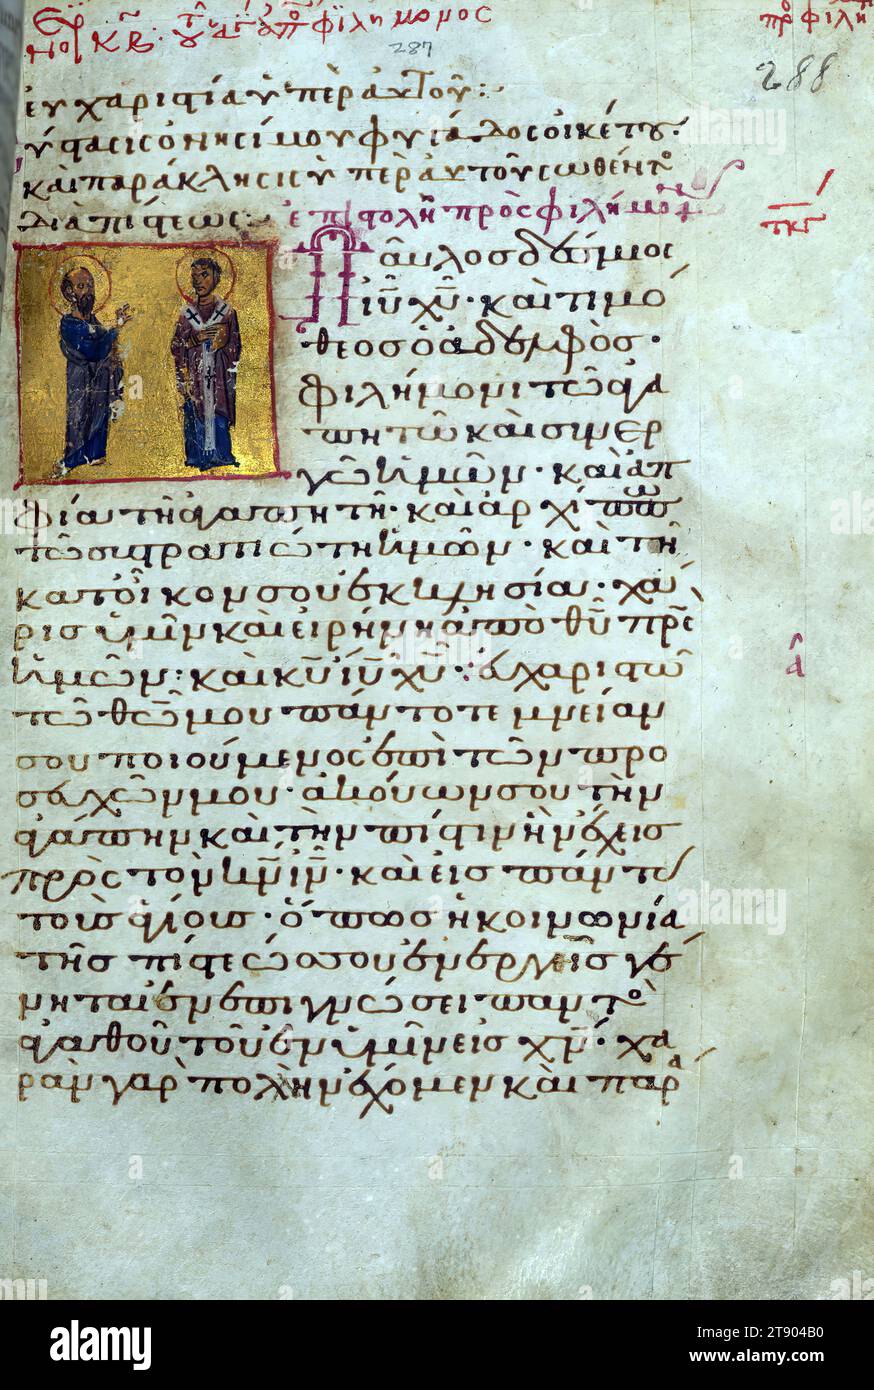 287
288
εὐχαριστία ὑπὲρ αὐτοῦ:
ὑστασις ὀνησίμου φυγάδος οἰκέτου.
καὶ παράκλησις ὑπὲρ αὐτοῦ σωθέντο
διὰ πίστεως: ἐπιστολὴ πρὸς φιλήμονα
Παῦλος δέσμιος
ιῦ χῦ · καὶ τιμό
θεος ὁ ἀδελφὸς ·
φιλήμονι τῶ ἀγα
πητῶ καὶ συνερ
γῶ ἡμῶν · καὶ ἀπ
φία τῆ ἀγαπητῆ · καὶ ἀρχίππω
τῶ συστρατιώτη ἡμῶν · καὶ τῆ
κατ οἶκον σου ἐκκλησία · χά
ρις ὑμῖν καὶ εἰρήνη ἀπὸ θῦ πρς
ἡμῶν : καὶ κῦ ιῦ χῦ · εὐχαριστῶ
τῶ θεῶ μου πάντοτε μνείαν
σου ποιούμενος ἐπὶ τῶν προ
σευχῶν μου · ἀκούων σου τὴν
ἀγάπην καὶ τὴν πίστιν ἣν ἔχεις
πρὸς τὸν κν ιν · καὶ εἰς πάντας
τοὺς ἁγίους · ὅπως ἡ κοινωνία
τῆς πίστεώς σου ἐνεργὴς γέ
νηται ἐν ἐπιγνώσει παντὸς
ἀγαθοῦ τοῦ ἐν ὑμῖν εἰς χν · χα
ρὰν γὰρ πολλὴν ἔχομεν καὶ παρά
alamy
Image ID: 2T904B0
www.alamy.com